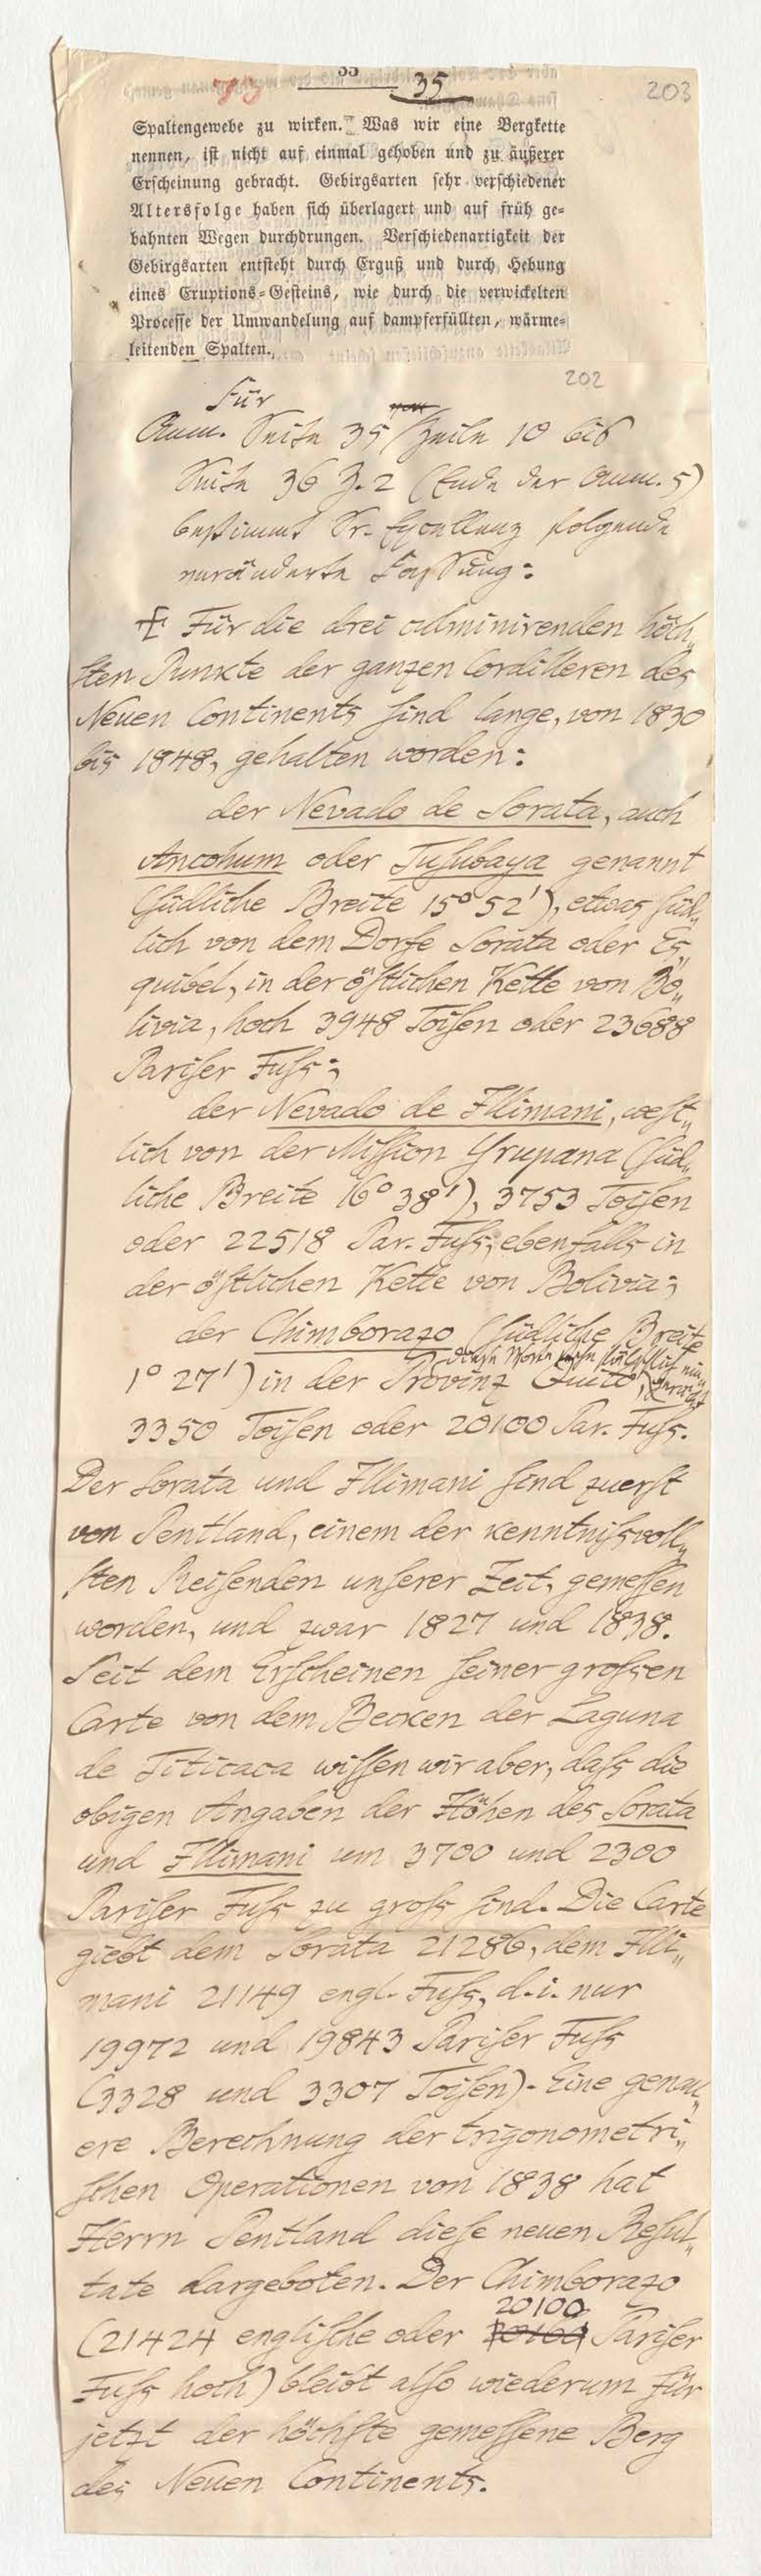 33
35
203
Spaltengewebe zu wirken. Was wir eine Bergkette
nennen, ist nicht auf einmal gehoben und zu äußerer
Erscheinung gebracht. Gebirgsarten sehr verschiedener
Altersfolge haben sich überlagert und auf früh ge-
bahnten Wegen durchdrungen. Verschiedenartigkeit der
Gebirgsarten entsteht durch Erguß und durch Hebung
eines Eruptions-Gesteins, wie durch die verwickelten
Processe der Umwandelung auf dampferfüllten, wärme-
leitenden Spalten.
202
Für
Anm. Seite 35 Zeile 10 bis
Seite 36 Z. 2 (Ende der Anm. 5)
bestimmt Sr. Excellenz folgende
veränderte Fassung:
Für die drei culminirenden höch-
sten Punkte der ganzen Cordilleren des
Neuen Continents sind lange, von 1830
bis 1848, gehalten worden:
der Nevado de Sorata, auch
Ancohum oder Tusubaya genannt
(südliche Breite 15° 52'), etwas süd-
lich von dem Dorfe Sorata oder Es-
quibel, in der östlichen Kette von Bo-
livia, hoch 3948 Toisen oder 23688
Pariser Fuss;
der Nevado de Illimani, west-
lich von der Mission Yrupana (süd-
liche Breite 16° 38'), 3753 Toisen
oder 22518 Par. Fuss, ebenfalls in
der östlichen Kette von Bolivia;
der Chimborazo (südliche Breite
1° 27') in der Provinz Quito,
3350 Toisen oder 20100 Par. Fuss.
Der Sorata und Illimani sind zuerst
von Pentland, einem der kenntnissvoll-
sten Reisenden unserer Zeit, gemessen
worden, und zwar 1827 und 1838.
Seit dem Erscheinen seiner grossen
Carte von dem Becken der Laguna
de Titicaca wissen wir aber, dass die
obigen Angaben der Höhen des Sorata
und Illimani um 3700 und 2300
Pariser Fuss zu gross sind. Die Carte
giebt dem Sorata 21286, dem Illi-
mani 21149 engl. Fuss, d. i. nur
19972 und 19843 Pariser Fuss
(3328 und 3307 Toisen). Eine genau-
ere Berechnung der trigonometri-
schen Operationen von 1838 hat
Herrn Pentland diese neuen Resul-
tate dargeboten. Der Chimborazo
20100
(21424 englische oder Pariser
Fuss hoch) bleibt also wiederum für
jetzt der höchste gemessene Berg
des Neuen Continents.